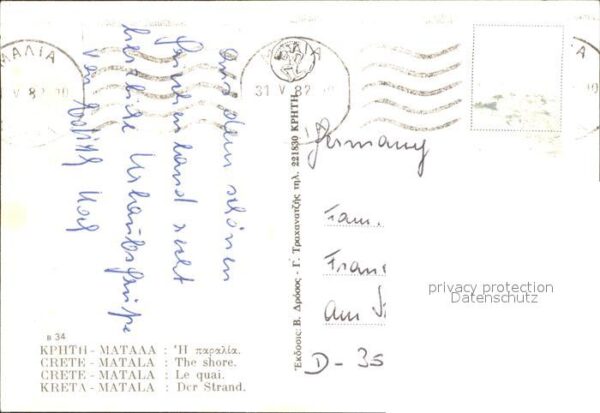 ΜΑΛΙΑ
V 82
31 V 82
Aus dem schönen
Griechenland
herzliche Urlaubsgrüße
Germany
Fam.
Fran
Am
D - 35
privacy protection
Datenschutz
B 34
ΚΡΗΤΗ - ΜΑΤΑΛΑ : Ἡ παραλία.
CRETE - MATALA : The shore.
CRETE - MATALA : Le quai.
KRETA - MATALA : Der Strand.
Ἔκδοσις: Β. Δρόσος - Γ. Τραχανατζῆς τηλ. 221830 ΚΡΗΤΗ